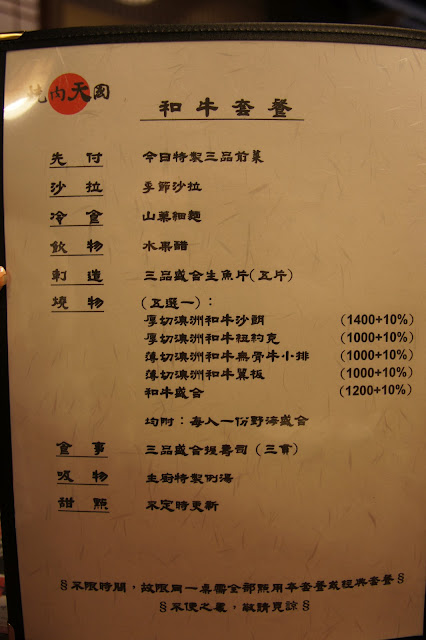 燒肉天國
和牛套餐
先付 今日特製三品前菜
沙拉 季節沙拉
冷食 山藥細麵
飲物 水果醋
刺造 三品盛合生魚片(五片)
燒物 (五選一)：
厚切澳洲和牛沙朗 (1400+10%)
厚切澳洲和牛紐約克 (1000+10%)
薄切澳洲和牛無骨牛小排 (1000+10%)
薄切澳洲和牛翼板 (1000+10%)
和牛盛合 (1200+10%)
均附：每人一份野海盛合
食事 三品盛合握壽司 (三貫)
吸物 主廚特製例湯
甜點 不定時更新
§不限時間，故限同一桌需全部點用本套餐或經典套餐§
§不便之處，敬請見諒§